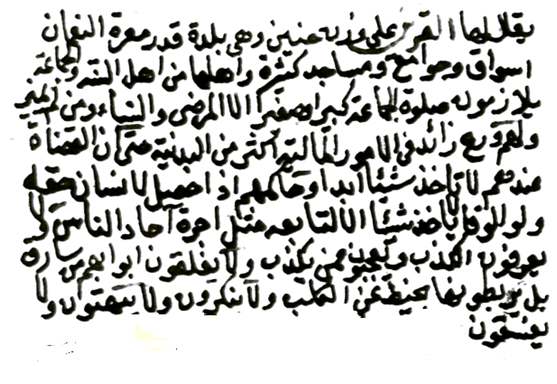 يقال لها القرين على وزن حنين وهي بلدة قدر معرة النعمان
اسواق وجوامع ومساجد كثيرة واهلها من اهل السنة والجماعة
يلازمون صلوة الجماعة كبيرا وصغيرا الا المرضى والنساء ومن
ولهم ورع زائد في الامور المالية اكثر من البدنية حتى ان القضاة
عندهم لا تأخذ شيئا ابدا وحاكمهم اذا حصل لانسان حقه
ولو الوفا لا يأخذ شيئا الا لتابعه مثل اجرة آحاد الناس لا
يعرفون الكذب ويعجبون ممن يكذب ولا يغلقون ابوابهم من سارق
بل يربطونها بخيط عن الكلب ولا ينكرون ولا ينتهبون ولا
يفسقون